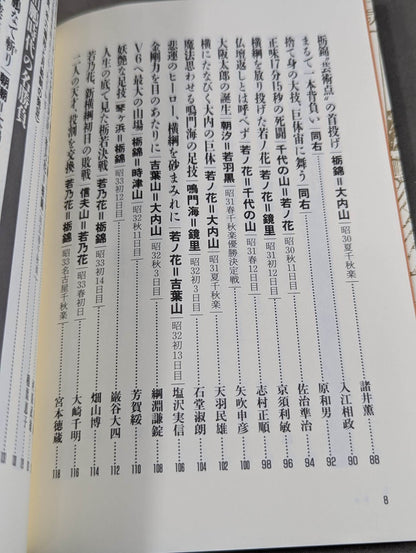 栃錦“芸術点”の首投げ 栃錦＝大内山 昭30夏千秋楽 諸井薫 88
まるで一本背負い 同右 入江相政 90
捨て身の大技、巨体宙に舞う 同右 原和男 92
正味17分15秒の死闘 千代の山＝若ノ花 昭30秋11日目 佐治準治 94
横綱を放り投げた若ノ花 若ノ花＝鏡里 昭31初12日目 京須利敏 96
仏壇返しとは呼べず 若ノ花＝千代の山 昭31春12日目 志村正順 98
大阪太郎の誕生 朝汐＝若羽黒 昭31春千秋楽優勝決定戦 矢吹申彦 100
横にたなびく大内の巨体 若ノ花＝大内山 昭31夏千秋楽 天羽民雄 102
魔法思わせる鳴門海の足技 鳴門海＝鏡里 昭32初3日目 石堂淑朗 104
悲運のヒーロー、横綱を砂まみれに 若ノ花＝吉葉山 昭32初13日目 塩沢実信 106
金剛力を目のあたりに 吉葉山＝大内山 昭32秋3日目 綱淵謙錠 108
V6へ最大の山場 栃錦＝時津山 昭32秋11日目 芳賀綏 110
妖艶な足技 琴ヶ浜＝栃錦 昭33初12日目 巌谷大四 112
人生の底で見た栃若決戦 栃錦＝若乃花 昭33初14日目 畑山博 114
若乃花、新横綱初日の敗戦 信夫山＝若乃花 昭33春初日 大崎千明 116
二人の天才、役割を交換 若乃花＝栃錦 昭33名古屋千秋楽 宮本徳蔵 118
8